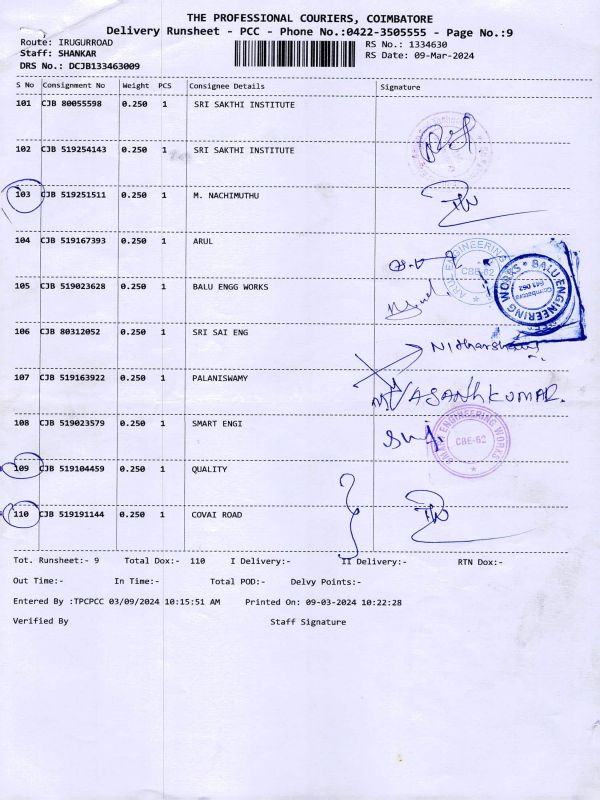 THE PROFESSIONAL COURIERS, COIMBATORE
Delivery Runsheet - PCC - Phone No.:0422-3505555 - Page No.:9
Route: IRUGURROAD
RS No.: 1334630
Staff: SHANKAR
RS Date: 09-Mar-2024
DRS No.: DCJB133463009
S No Consignment No Weight PCS Consignee Details Signature
101 CJB 80055598 0.250 1 SRI SAKTHI INSTITUTE
102 CJB 519254143 0.250 1 SRI SAKTHI INSTITUTE
103 CJB 519251511 0.250 1 M. NACHIMUTHU
104 CJB 519167393 0.250 1 ARUL
ARUL ENGINEERING CBE-62
105 CJB 519023628 0.250 1 BALU ENGG WORKS
BALU ENGINEERING WORKS Coimbatore 641 062
106 CJB 80312052 0.250 1 SRI SAI ENG
107 CJB 519163922 0.250 1 PALANISWAMY
VASANTHKUMAR.
108 CJB 519023579 0.250 1 SMART ENGI
ENGINEERING WORKS CBE-62
109 CJB 519104459 0.250 1 QUALITY
110 CJB 519191144 0.250 1 COVAI ROAD
Tot. Runsheet:- 9 Total Dox:- 110 I Delivery:- II Delivery:- RTN Dox:-
Out Time:- In Time:- Total POD:- Delvy Points:-
Entered By :TPCPCC 03/09/2024 10:15:51 AM Printed On: 09-03-2024 10:22:28
Verified By Staff Signature